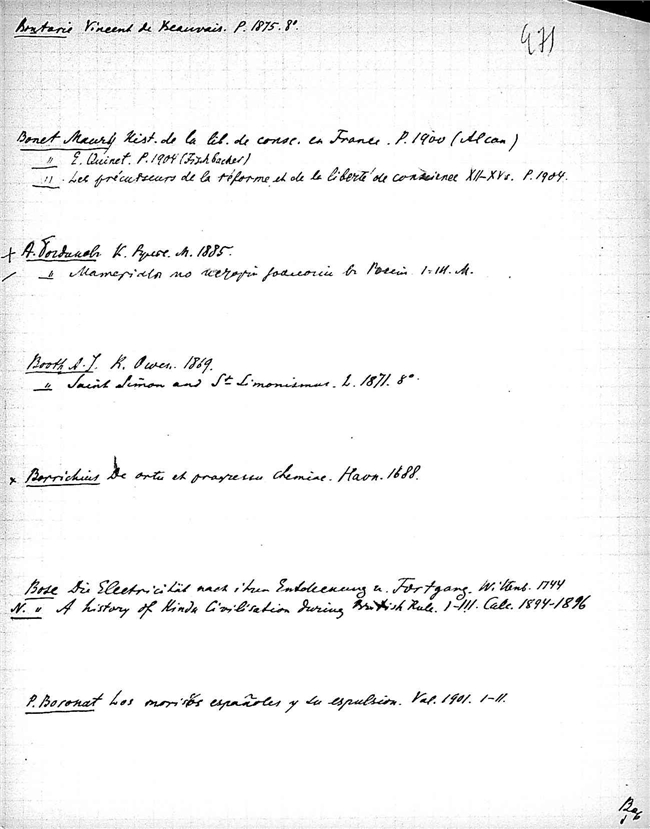 Boutaric Vincent de Beauvais. P. 1875. 8°.
471
Bonet Maury Hist. de la lib. de consc. en France. P. 1900 (Alcan)
" E. Quinet. P. 1904 (Fischbacher)
" Les précurseurs de la réforme et de la liberté de conscience XII–XVs. P. 1904.
+ А. Богданов К. М. 1885.
" Материалы по истории в России. I–III. М.
Booth A. J. R. Owen. 1869.
" Saint Simon and St Simonismus. L. 1871. 8°.
× Borrichius De ortu et progressu chemiae. Havn. 1688.
Bose Die Electricität nach ihrer Entdeckung u. Fortgang. Wittenb. 1744
N. " A history of Hindu Civilisation during British Rule. I–III. Calc. 1894–1896
P. Boronat Los moriscos españoles y su espulsion. Val. 1901. I–II.